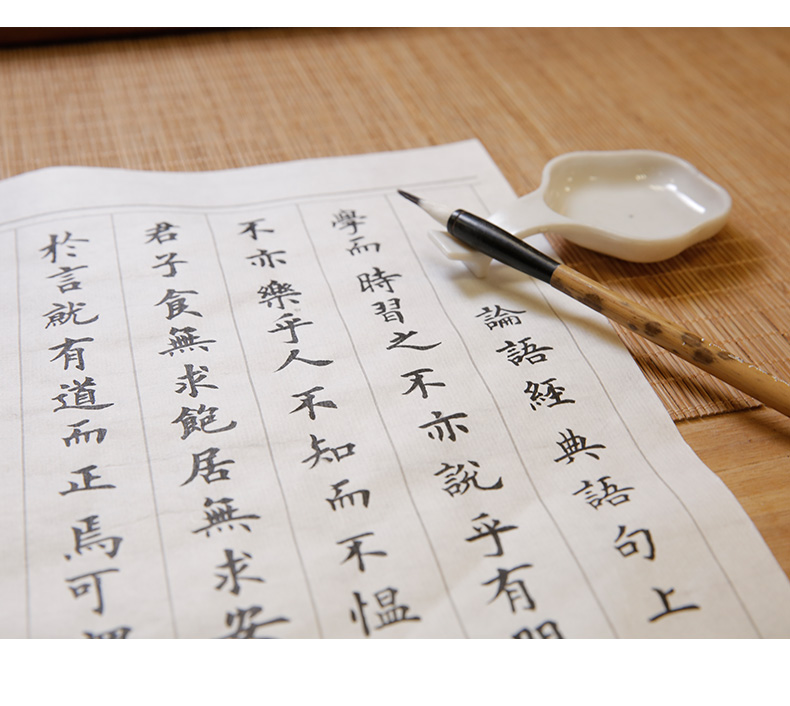 論語經典語句上
學而時習之不亦說乎有
不亦樂乎人不知而不慍
君子食無求飽居無求安
於言就有道而正焉可